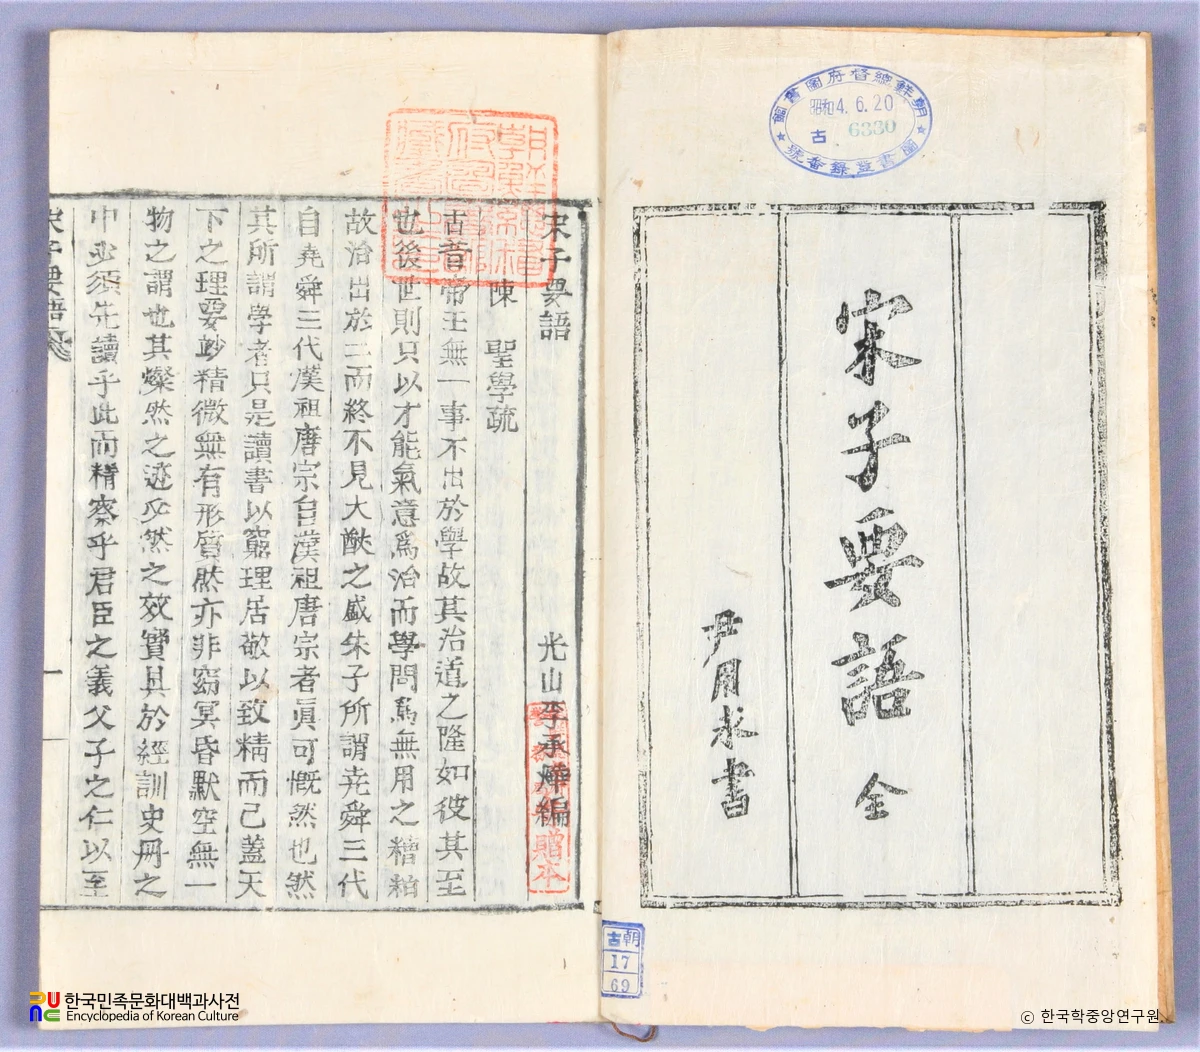 朝鮮總督府圖書館
昭和4.6.20
古 6330
圖書登錄番號
宋子要語 全
尹用求書
朝鮮總督府圖書館藏書之印
宋子要語
光山李承燁編
贈本
陳 聖學疏
古昔帝王無一事不出於學故其治道之隆如彼其至
也後世則只以才能氣意爲治而學問爲無用之糟粕
故治出於二而終不見大猷之盛朱子所謂尭舜三代
自尭舜三代漢祖唐宗自漢祖唐宗者眞可慨然也然
其所謂學者只是讀書以窮理居敬以致精而己蓋天
下之理要妙精微無有形質然亦非窈冥昏默空無一
物之謂也其燦然之迹必然之效實具於經訓史冊之
中必須先讀乎此而精察乎君臣之義父子之仁以至
宋子要語
一
古朝
17
69
한국민족문화대백과사전
Encyclopedia of Korean Culture
ⓒ 한국학중앙연구원